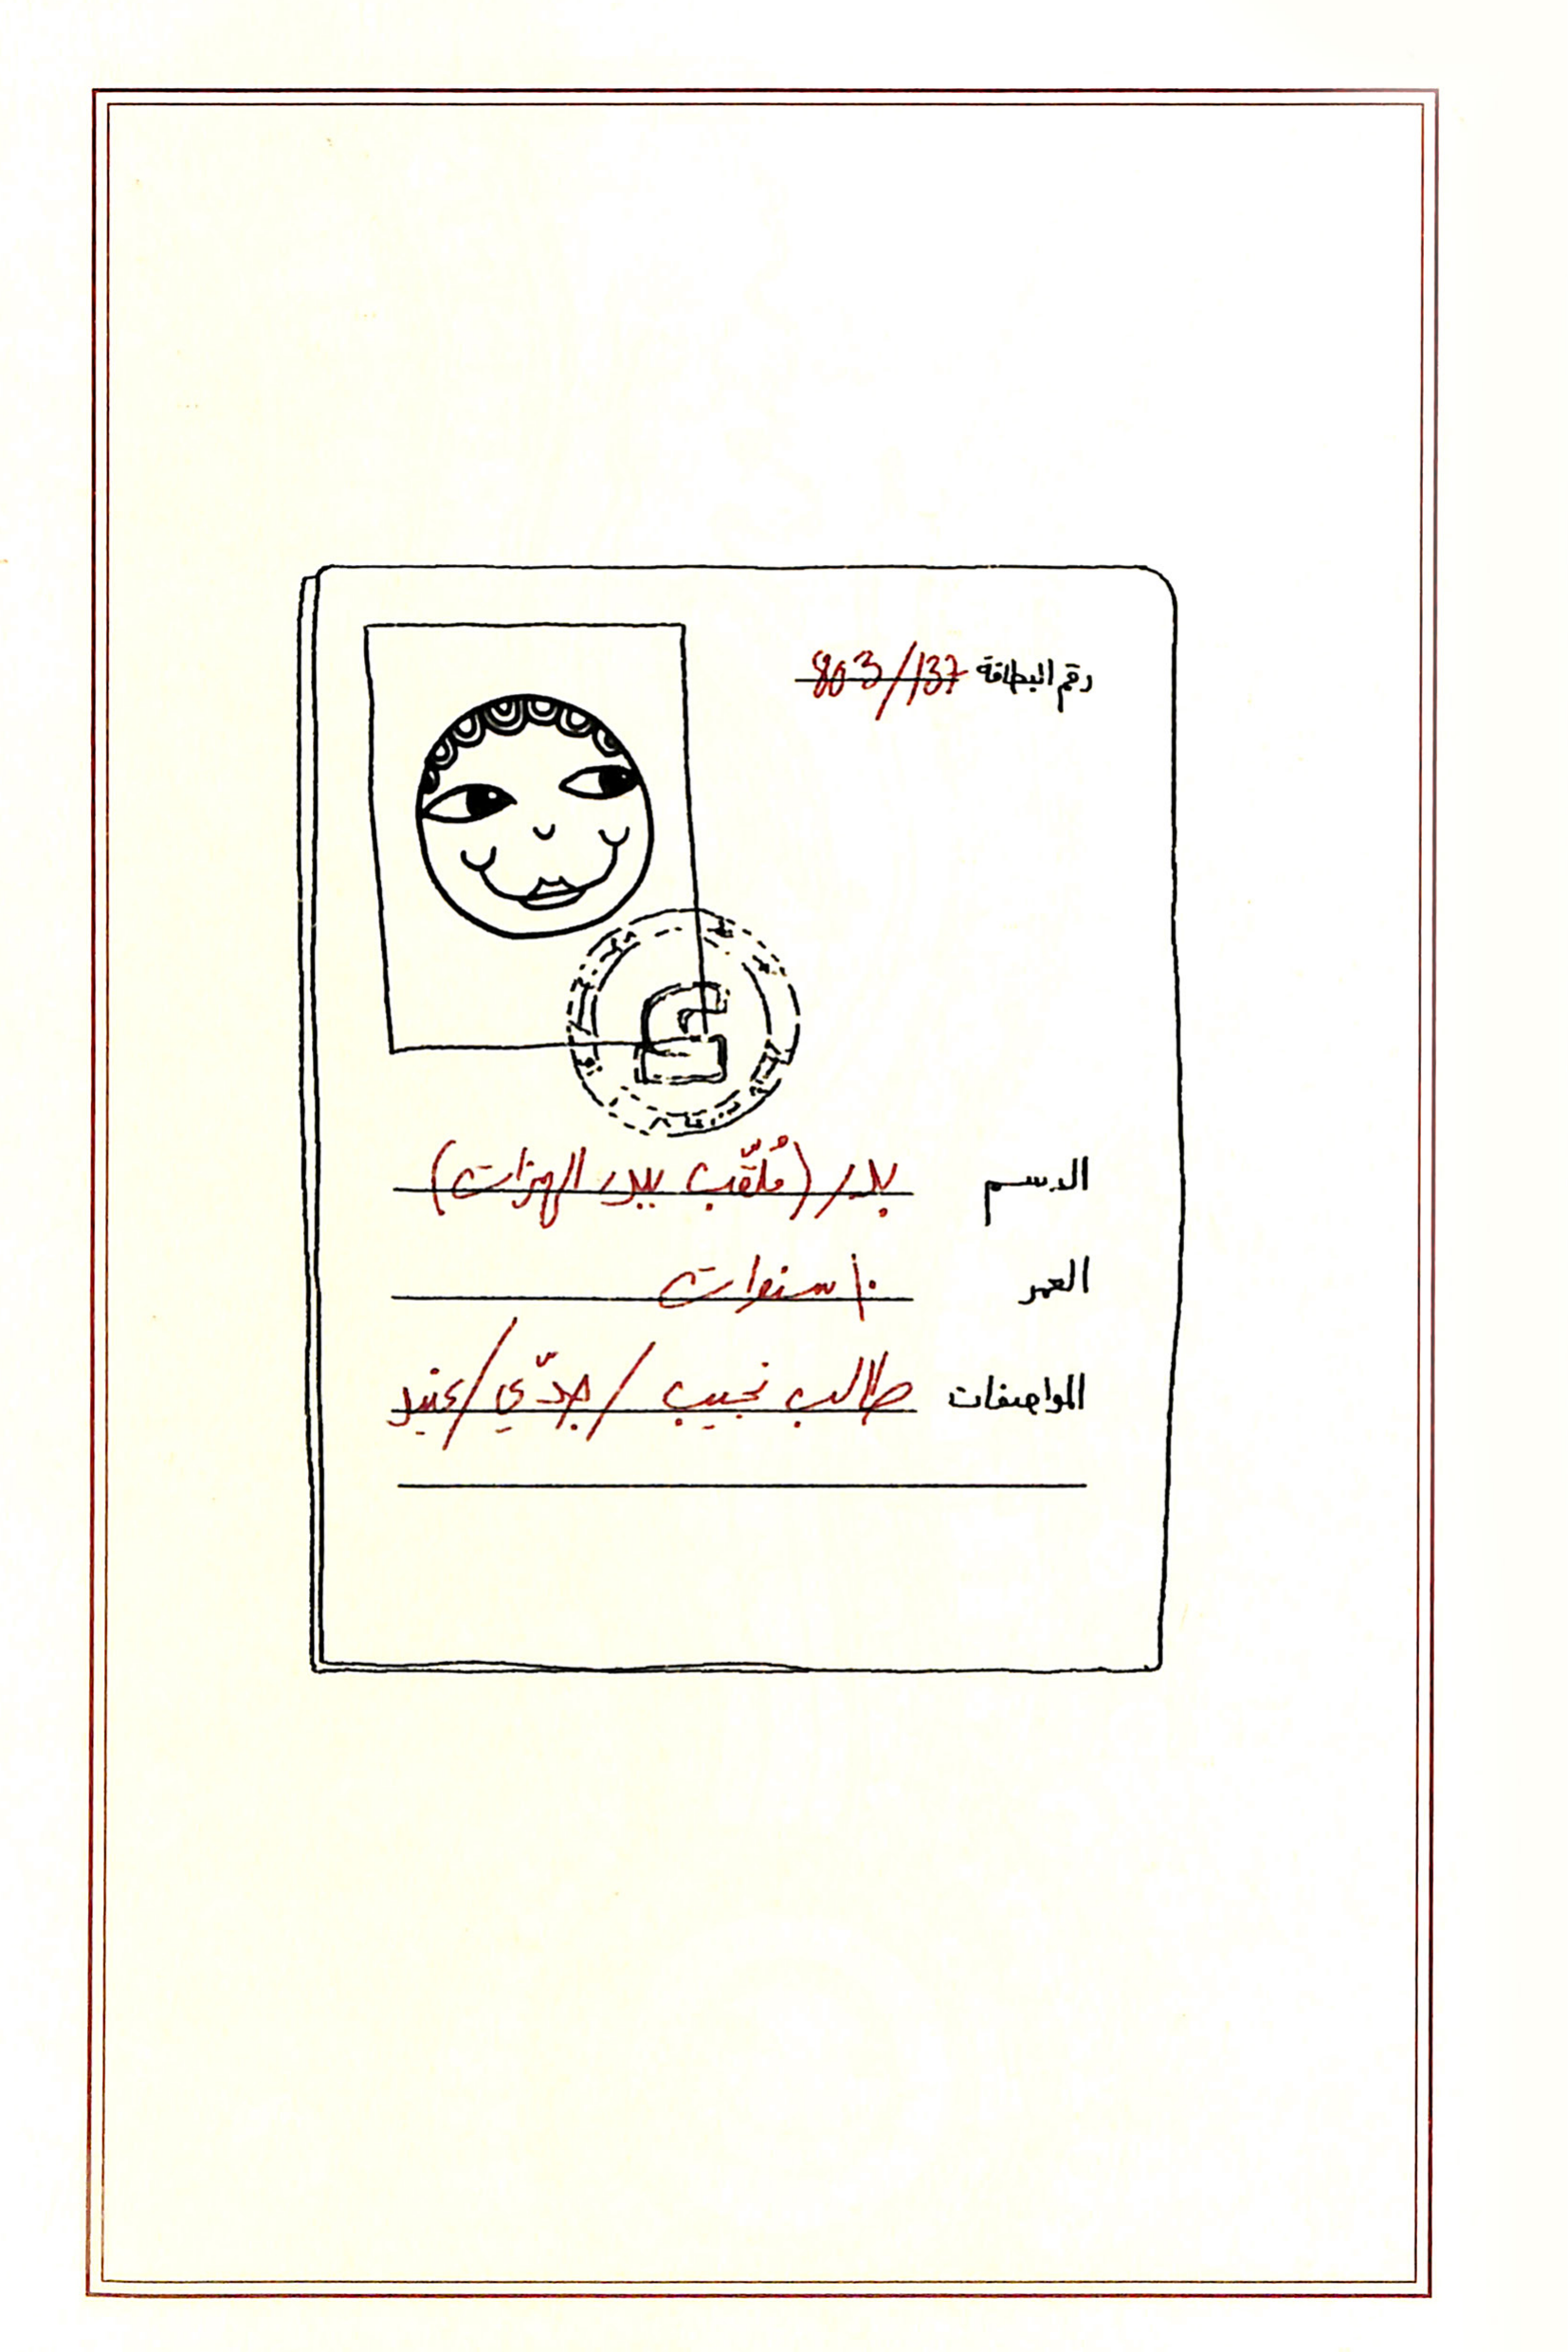 رقم البطاقة 803/137
الاسم بدر (مُلقّب ببدر الهزات)
العمر ١٠ سنوات
المواصفات طالب نجيب / جدّي / عنيد